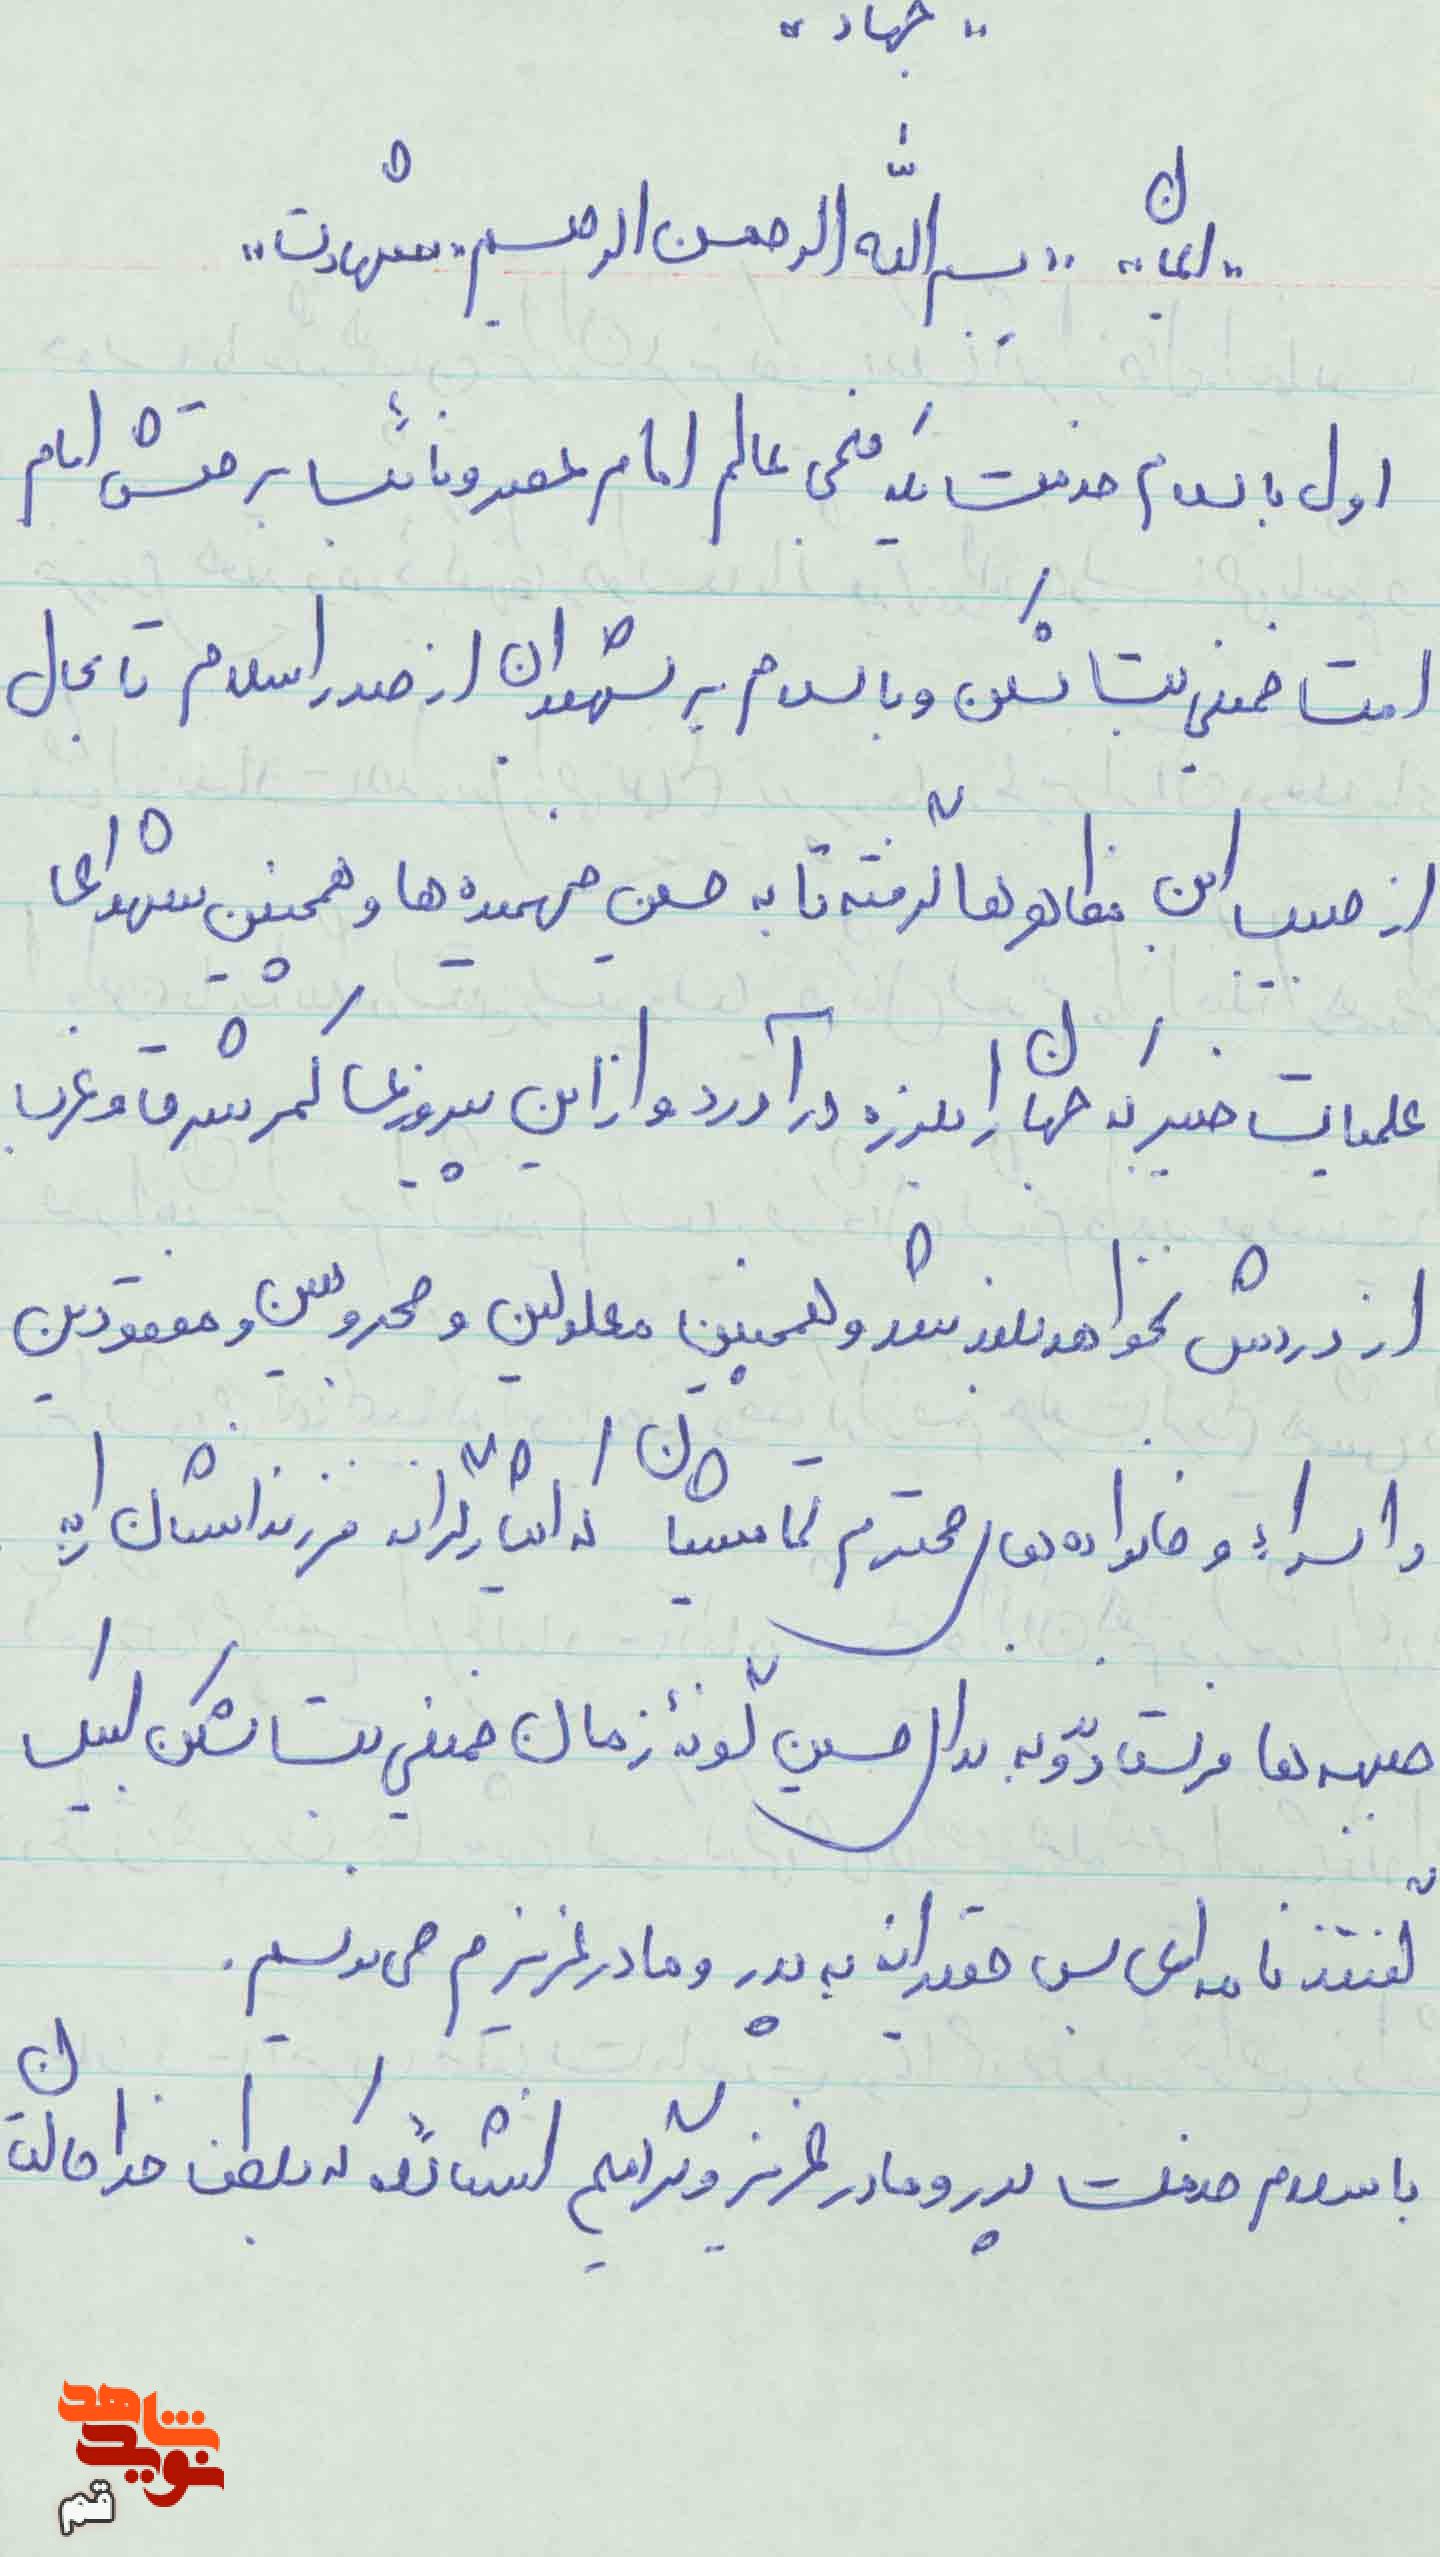 "جهاد"
"ایمان" "بسم الله الرحمن الرحیم" "شهادت"
اول با سلام خدمت یکه منجی عالم امام عصر و نائب بر حقش امام
امت خمینی بت شکن و با سلام بر شهیدان از صدر اسلام تا بحال
از حبیب ابن مظاهرها گرفته تا به حسین فهمیده ها و همچنین شهدای
عملیات خیبر که جهان را بلرزه درآورد و از این پیروزیها کمر شرق و غرب
از دردش نخواهد بلند شد و همچنین معلولین و مجروحین و مفقودین
و اسراء و خانواده های محترم تمامشان که ایثارگرانه فرزندانشان را به
جبهه ها فرستاده و به بدال حسین گونهٔ زمان خمینی بت شکن لبیک
گفتند نامه ای بس حقیرانه به پدر و مادر عزیزم می نویسم.
با سلام خدمت پدر و مادر عزیز و گرامیم انشاءالله که بلطف خدا حالتان
شاهد
نوید
قم